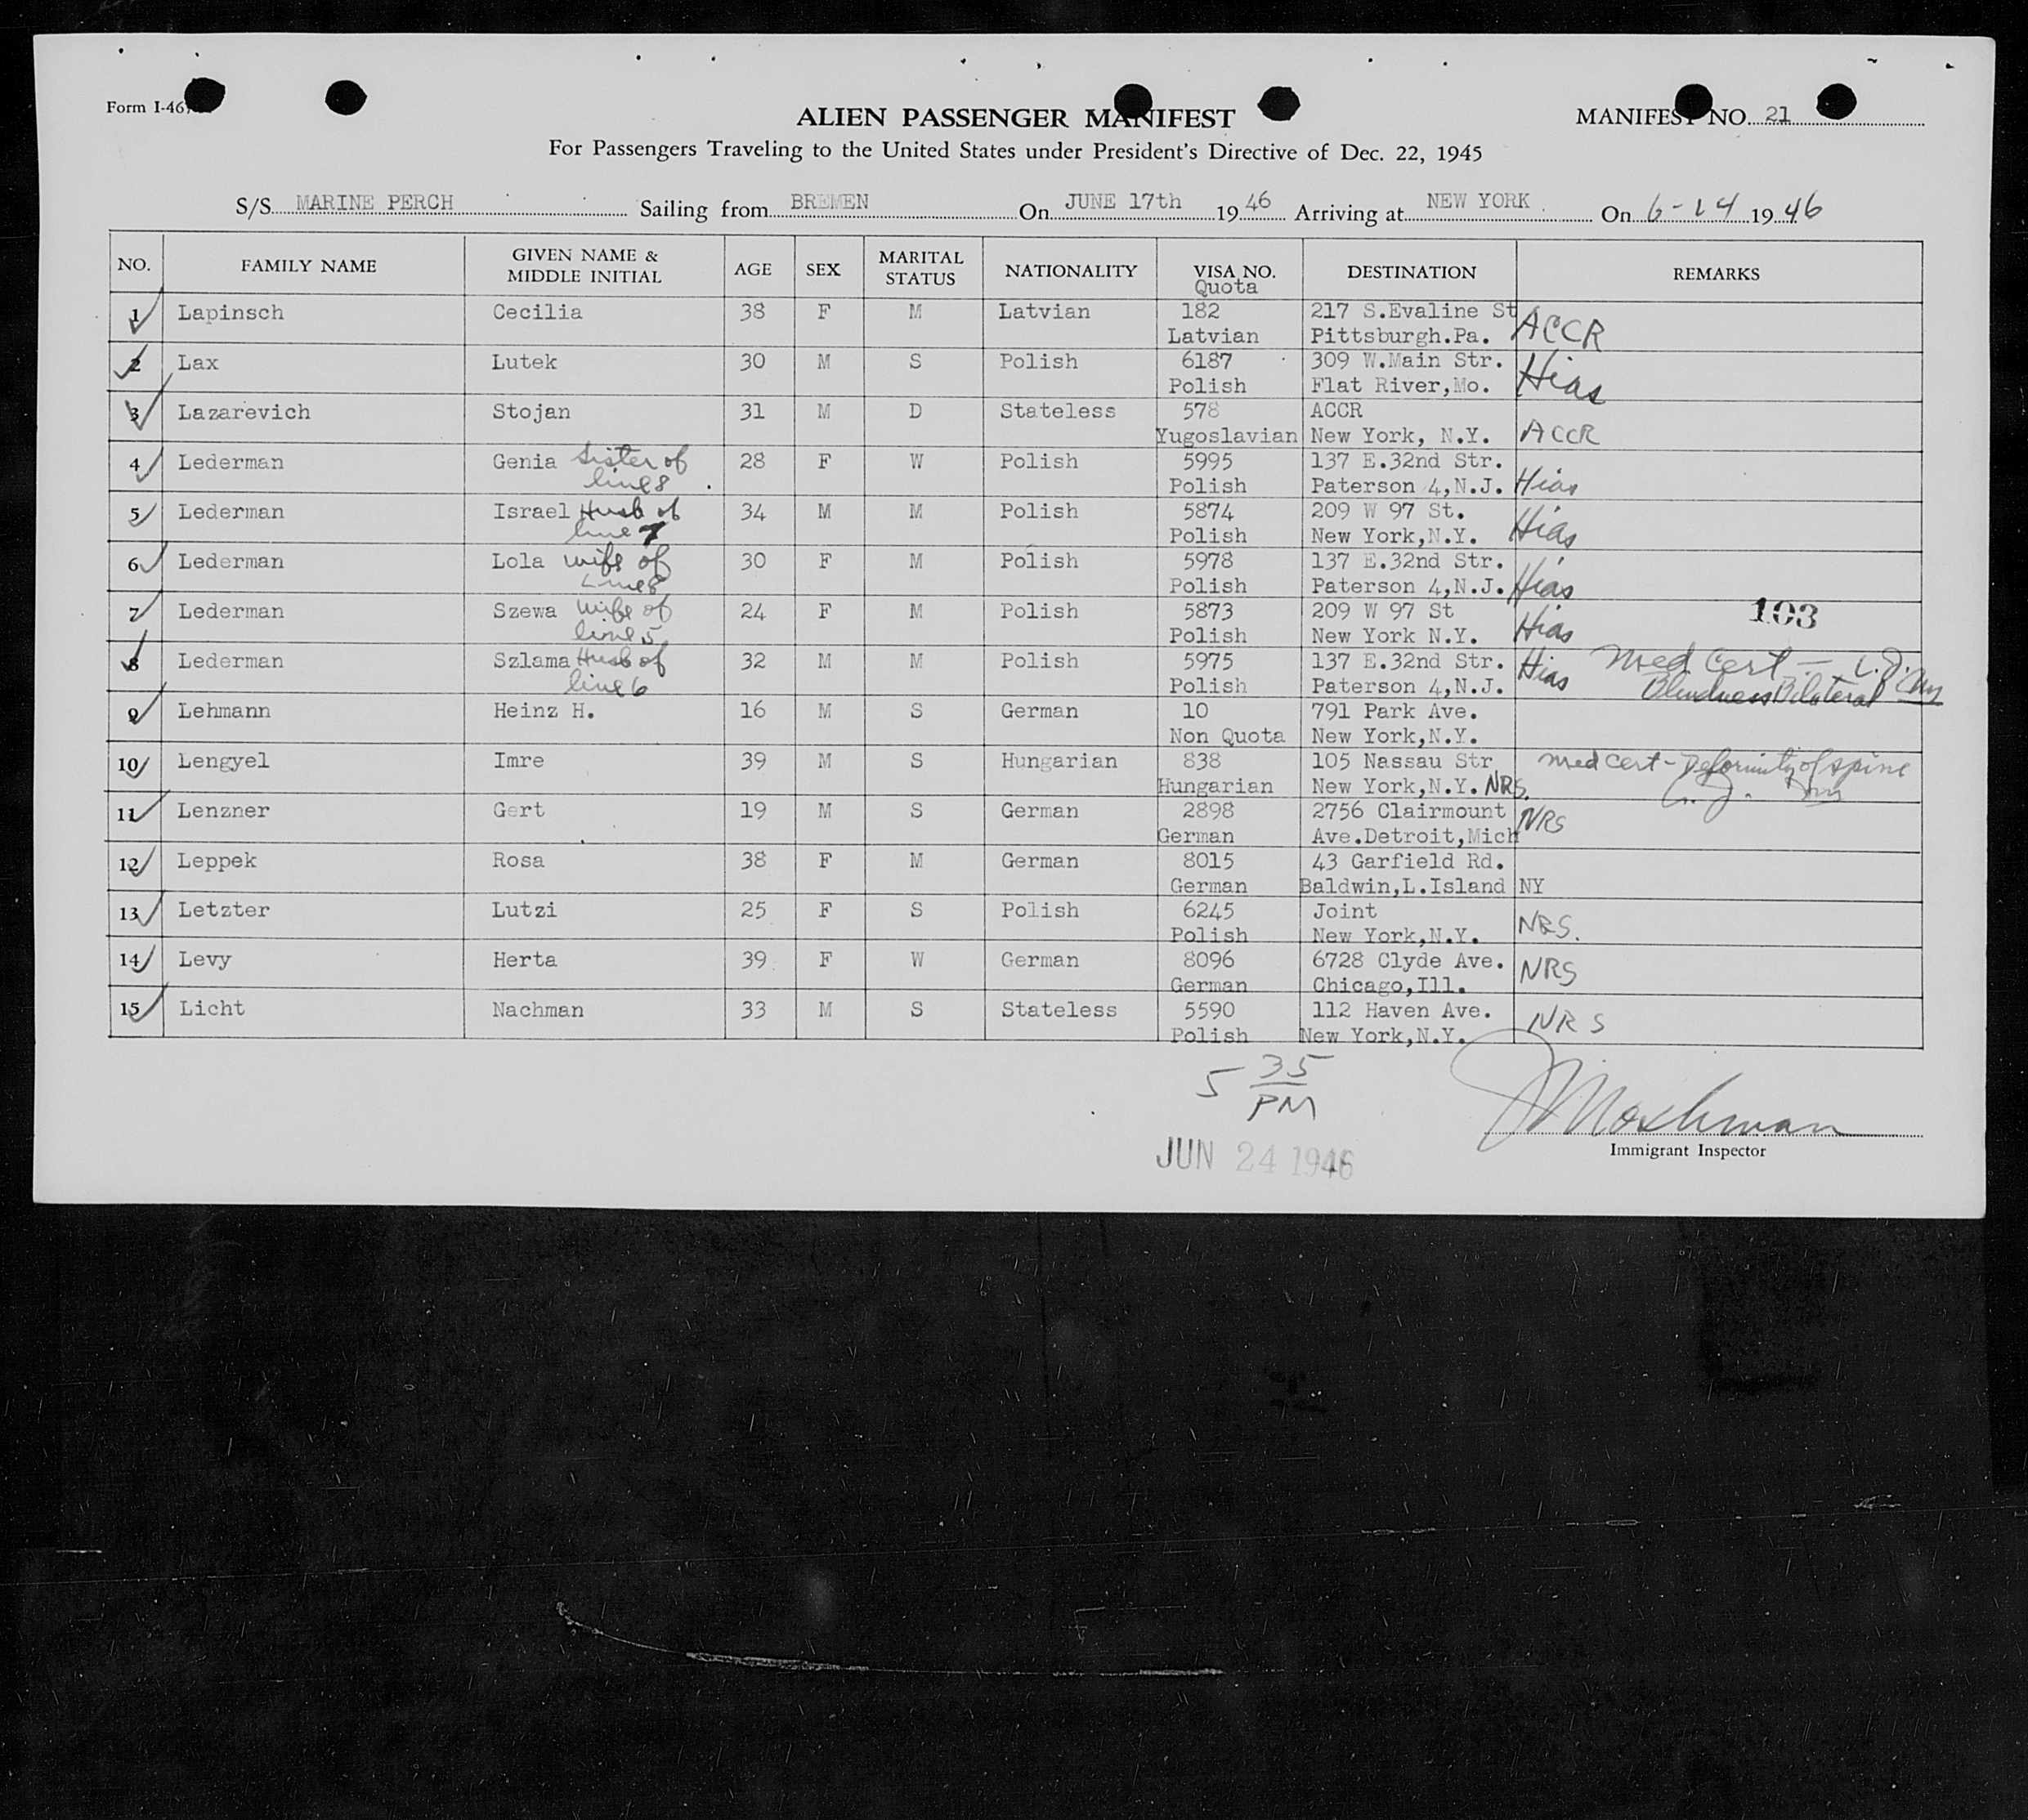 Form I-46
ALIEN PASSENGER MANIFEST
MANIFEST NO. 21
For Passengers Traveling to the United States under President's Directive of Dec. 22, 1945
S/S MARINE PERCH Sailing from BREMEN On JUNE 17th 19 46 Arriving at NEW YORK On 6-24 19 46
NO. FAMILY NAME GIVEN NAME & MIDDLE INITIAL AGE SEX MARITAL STATUS NATIONALITY VISA NO. Quota DESTINATION REMARKS
1 Lapinsch Cecilia 38 F M Latvian 182 217 S.Evaline St
Latvian Pittsburgh.Pa. ACCR
2 Lax Lutek 30 M S Polish 6187 309 W.Main Str.
Polish Flat River,Mo. Hias
3 Lazarevich Stojan 31 M D Stateless 578 ACCR
Yugoslavian New York, N.Y. ACCR
4 Lederman Genia Sister of 28 F W Polish 5995 137 E.32nd Str.
line 8 Polish Paterson 4,N.J. Hias
5 Lederman Israel Husb of 34 M M Polish 5874 209 W 97 St.
line 7 Polish New York,N.Y. Hias
6 Lederman Lola wife of 30 F M Polish 5978 137 E.32nd Str.
Line 8 Polish Paterson 4,N.J. Hias
7 Lederman Szewa wife of 24 F M Polish 5873 209 W 97 St 103
line 5 Polish New York N.Y. Hias
8 Lederman Szlama Husb of 32 M M Polish 5975 137 E.32nd Str. Hias Med Cert -
line 6 Polish Paterson 4,N.J. Blindness Bilateral
9 Lehmann Heinz H. 16 M S German 10 791 Park Ave.
Non Quota New York,N.Y.
10 Lengyel Imre 39 M S Hungarian 838 105 Nassau Str med cert - Deformity of spine
Hungarian New York,N.Y. NRS.
11 Lenzner Gert 19 M S German 2898 2756 Clairmount NRS
German Ave.Detroit,Mich
12 Leppek Rosa 38 F M German 8015 43 Garfield Rd.
German Baldwin,L.Island NY
13 Letzter Lutzi 25 F S Polish 6245 Joint NRS.
Polish New York,N.Y.
14 Levy Herta 39 F W German 8096 6728 Clyde Ave. NRS
German Chicago,Ill.
15 Licht Nachman 33 M S Stateless 5590 112 Haven Ave. NRS
Polish New York,N.Y.
5 35
PM
Moshman
Immigrant Inspector
JUN 24 1946